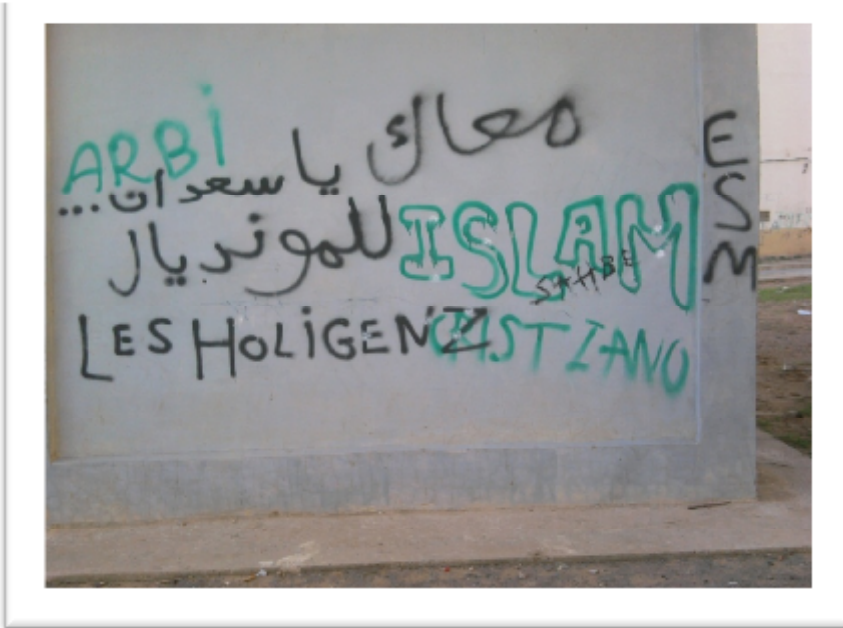 ARBi
معاك يا سعدان...
للمونديال
ISLAM
SAHBE
LES HOLiGENZ
CRISTIANO
ESM